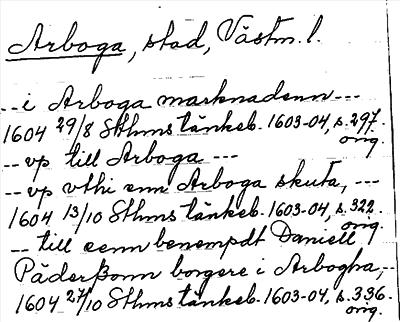 Arboga, stad, Västm. l.
-- i Arboga marknadenn ---
1604 29/8 Sthms tänkeb. 1603-04, s. 297.
orig.
-- vp till Arboga ---
-- vp vthi enn Arboga skuta, ---
1604 13/10 Sthms tänkeb. 1603-04, s. 322.
orig.
-- till eenn benempdt Daniell
Päderßonn borgere i Arbogha, --
1604 27/10 Sthms tänkeb. 1603-04, s. 336.
orig.